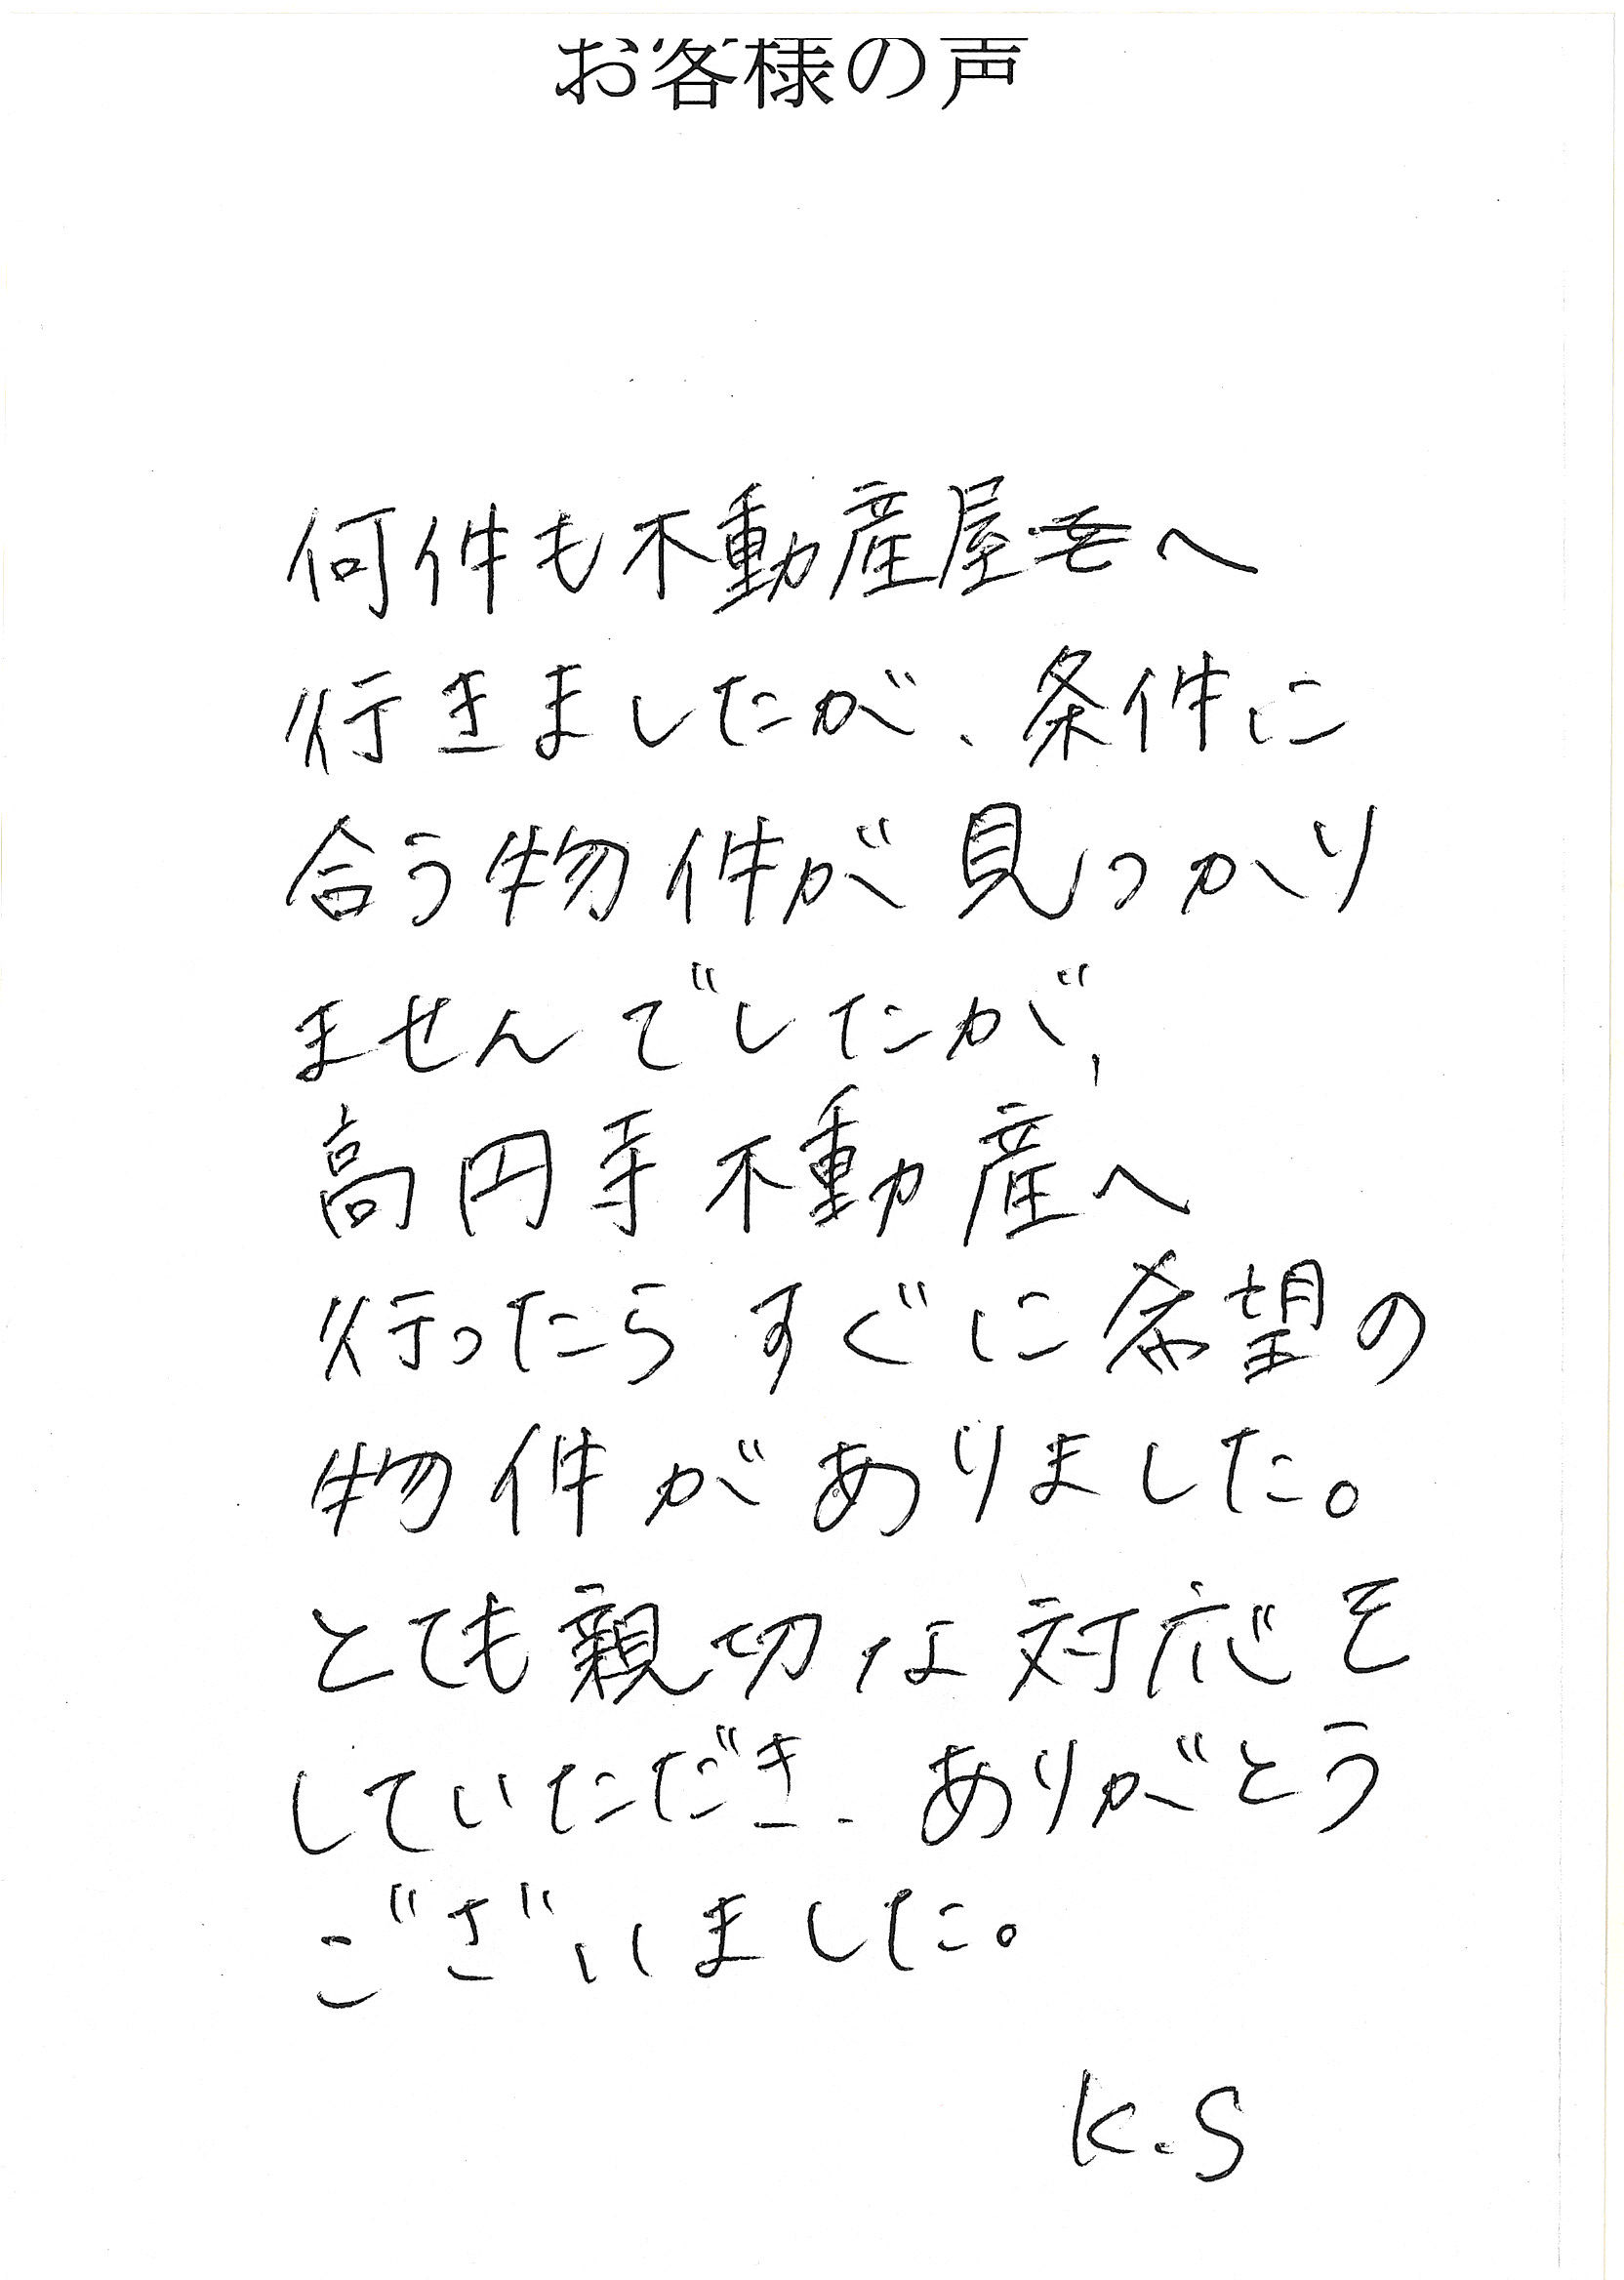 お客様の声
何件も不動産屋へ
行きましたが、条件に
合う物件が見つかり
ませんでしたが、
高円寺不動産へ
行ったらすぐに希望の
物件がありました。
とても親切な対応を
していただき、ありがとう
ございました。
K.S